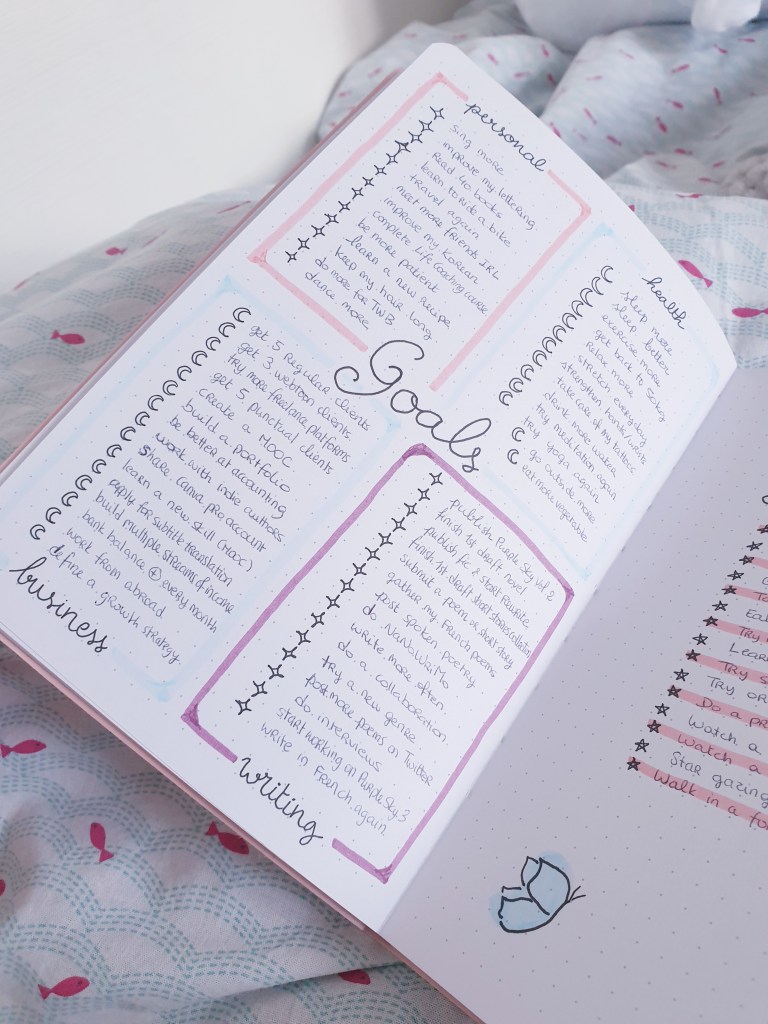 Goals
personal
sing more
improve my lettering
Read 40 books
learn to ride a bike
travel again
meet more friends IRL
improve my korean
complete life coaching course
be more patient
learn a new recipe
keep my hair long
do more for TWB
dance more
health
sleep more
sleep better
exercise more
get back to 50kg
Relax more
stretch everyday
strengthen hands/wrist
take care of my tattoos
drink more water
try meditation again
try yoga again
go outside more
eat more vegetable
get 5 regular clients
get 3 webtoon clients
try more freelance platforms
get 5 punctual clients
create a MOOC
build a portfolio
be better at accounting
work with indie authors
share Canva pro account
learn a new skill (HaX)
apply for subtitle translation
build multiple streams of income
bank balance + every month
work from abroad
define a growth strategy
business
publish Purple Sky vol 2
finish 1st draft novel
publish fic & start rewrite
finish 1st draft short stories collection
submit a poem or short story
gather my French poems
post spoken poetry
do NaNoWriMo
write more often
do a collaboration
try a new genre
post more poems on Twitter
do interviews
start working on Purple Sky 3
write in French again
writing
To
Eat
Try
Learn
Try s
Try or
Do a pr
Watch a
watch a
Star gazing
Walk in a fo